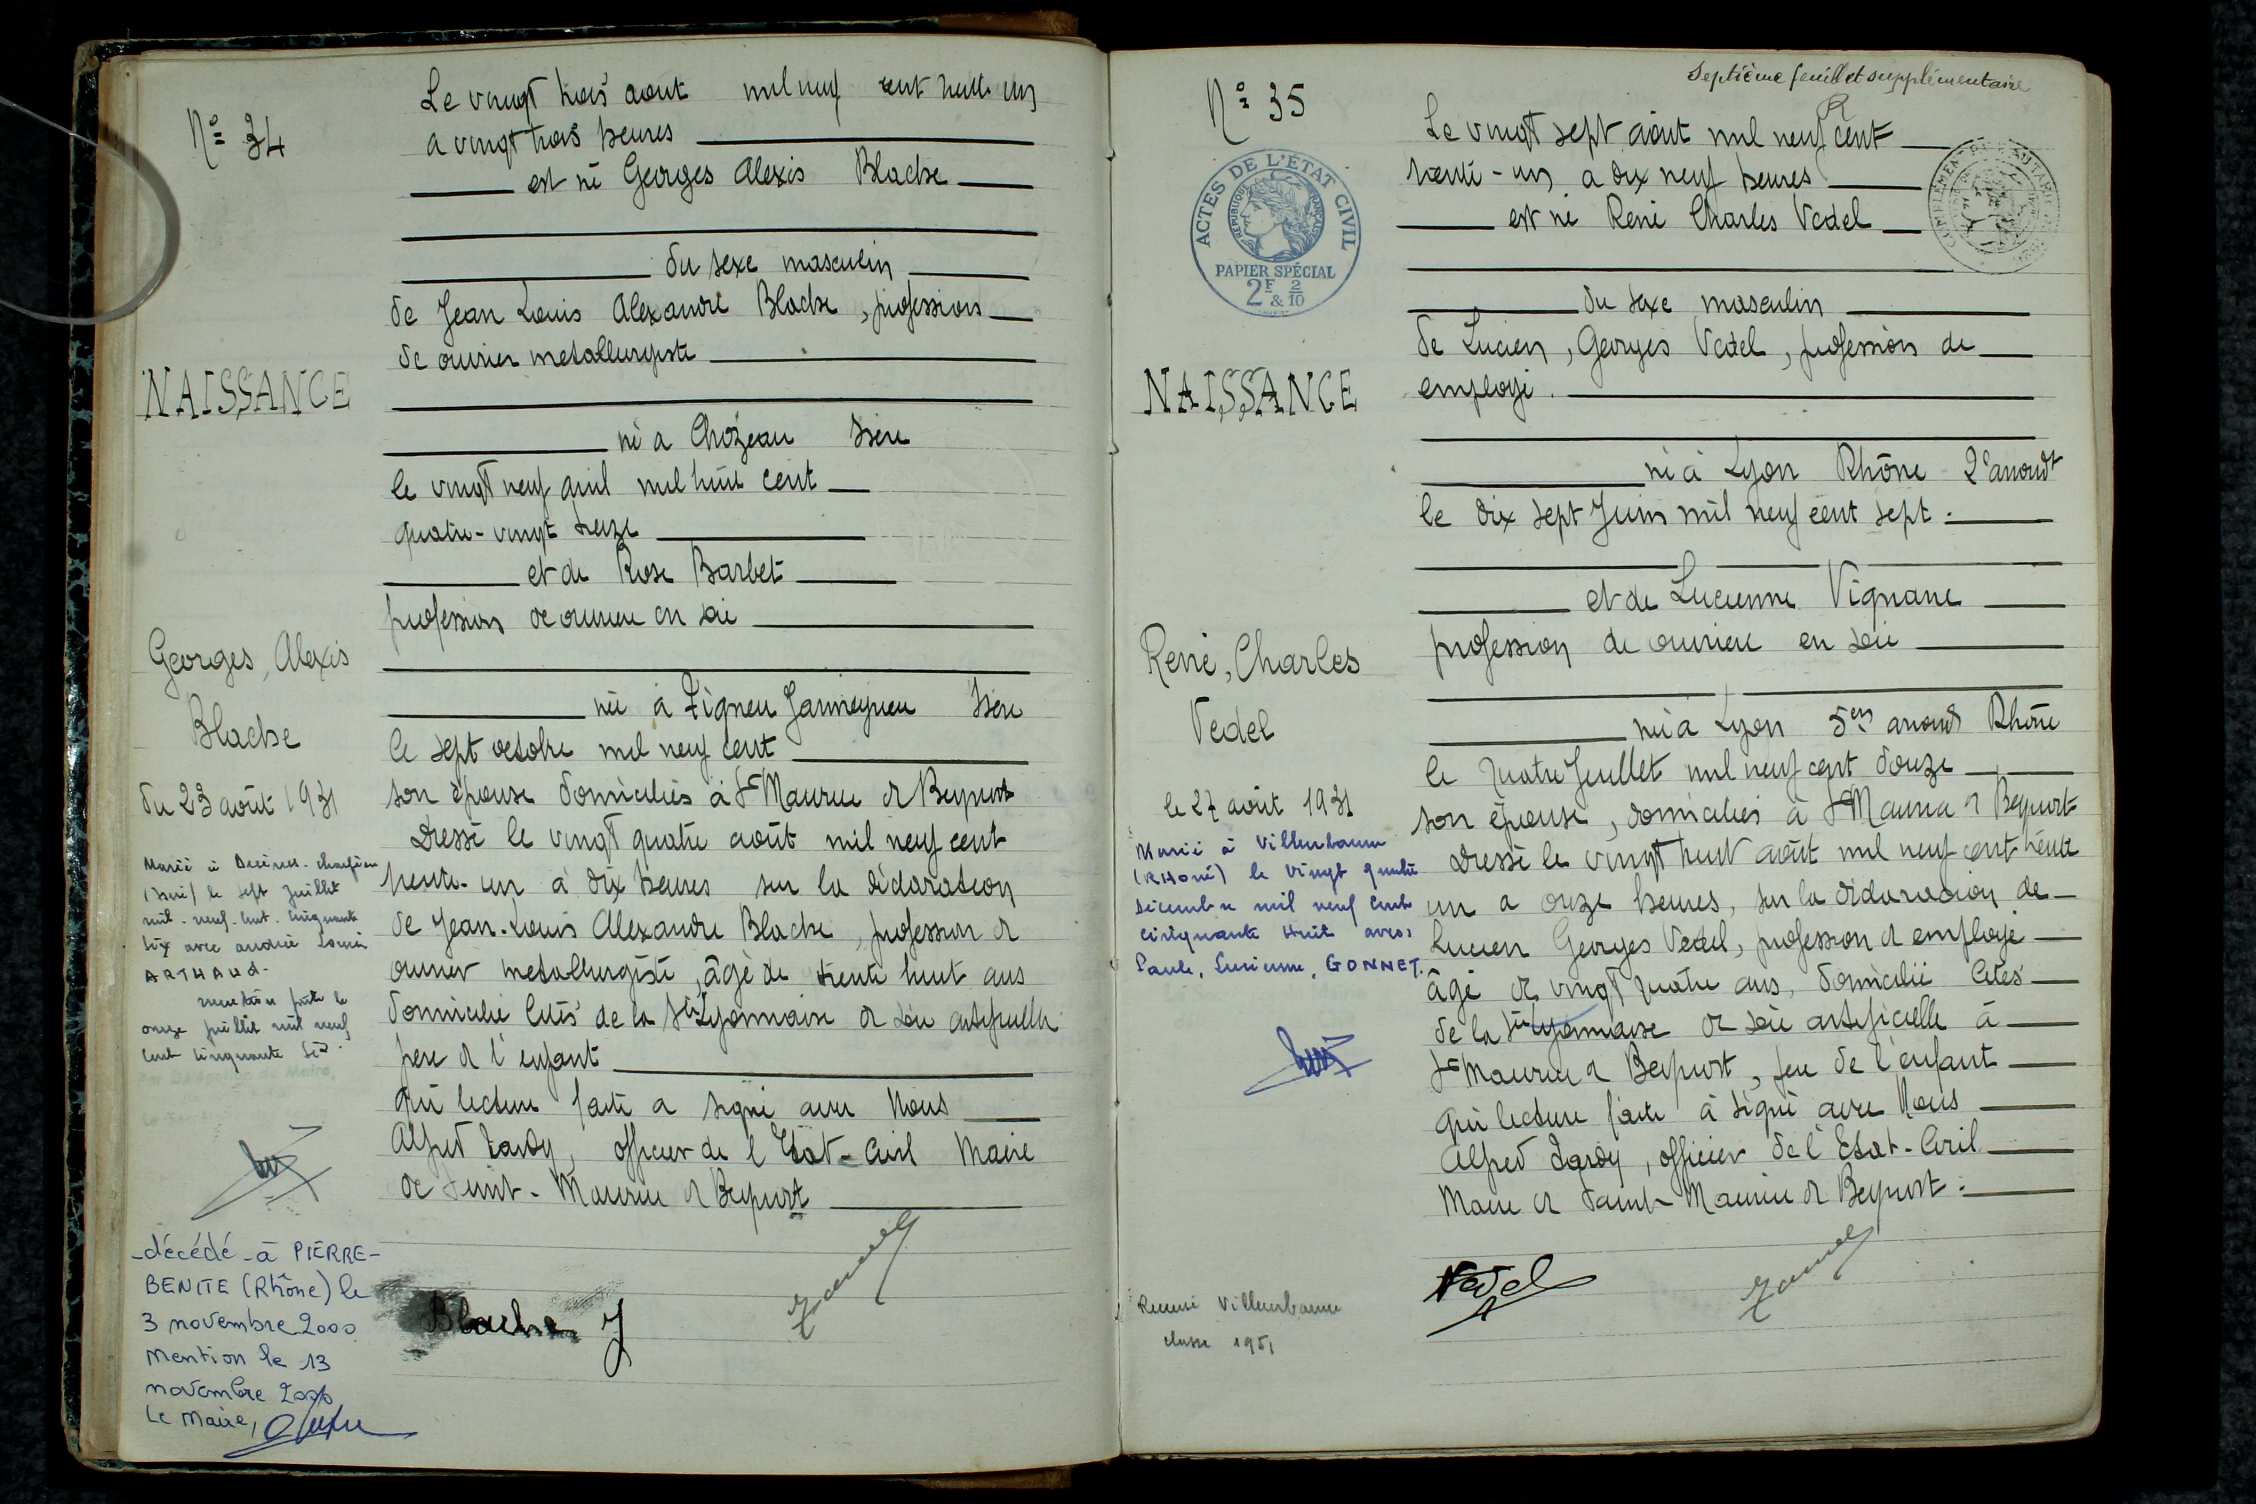 N° 34
Le vingt trois aout mil neuf cent trente un
a vingt trois heures
est né Georges Alexis Blache
du sexe masculin
de Jean Louis Alexandre Blache, profession
de ouvrier metallurgiste
NAISSANCE
né a Chozeau Isère
le vingt neuf avril mil huit cent
quatre-vingt treize
et de Rose Barbet
profession de ouvriere en soie
Georges, Alexis
Blache
née à Tignieu Jameyzieu Isère
le sept octobre mil neuf cent
du 23 août 1931
son épouse domiciliés à St Maurice de Beynost
Dressé le vingt quatre août mil neuf cent
trente-un à dix heures sur la déclaration
de Jean-Louis Alexandre Blache, profession de
ouvrier metallurgiste, âgé de trente huit ans
domicilié Cités de la Sté Lyonnaise de soie artificielle
pere de l'enfant
qui lecture faite a signé avec Nous
Alfred Tardy, officier de l'Etat-Civil Maire
de Saint-Maurice de Beynost
Marié à Decines-Charpieu
(Isère) le sept juillet
mil-neuf-cent-cinquante
six avec andrée
ARTHAUD-
mention faite le
onze juillet mil neuf
cent cinquante six.
_décédé_à PIERRE-
BENITE (Rhône) le
3 novembre 2000
mention le 13
novembre 2000
Le Maire,
Blache J
Septième feuillet supplémentaire
N° 35
Le vingt sept août mil neuf cent
trente-un a dix neuf heures
est né René Charles Vedel
ACTES DE L'ÉTAT CIVIL
RÉPUBLIQUE FRANÇAISE
PAPIER SPÉCIAL
2F & 2/10
du sexe masculin
de Lucien, Georges Vedel, profession de
employé.
NAISSANCE
né à Lyon Rhône 2e arrondt
le dix sept Juin mil neuf cent sept.
et de Lucienne Vignane
profession de ouvriere en soie
René, Charles
Vedel
née à Lyon 5em arrondt Rhône
le quatre Juillet mil neuf cent douze
le 27 août 1931
son épouse, domiciliés à St Maurice de Beynost
Dressé le vingt huit août mil neuf cent trente
un a onze heures, sur la déclaration de
Lucien Georges Vedel, profession de employé
âgé de vingt quatre ans, domicilié Cités
de la Sté Lyonnaise de soie artificielle à
St Maurice de Beynost, pere de l'enfant
qui lecture faite à signé avec Nous
Alfred Tardy, officier de l'Etat-Civil
Maire de Saint Maurice de Beynost.
Marié à Villeurbanne
(RHône) le vingt quatre
décembre mil neuf cent
cinquante huit avec
Paule, Lucienne, GONNET.
Recensé Villeurbanne
classe 1951
Vedel